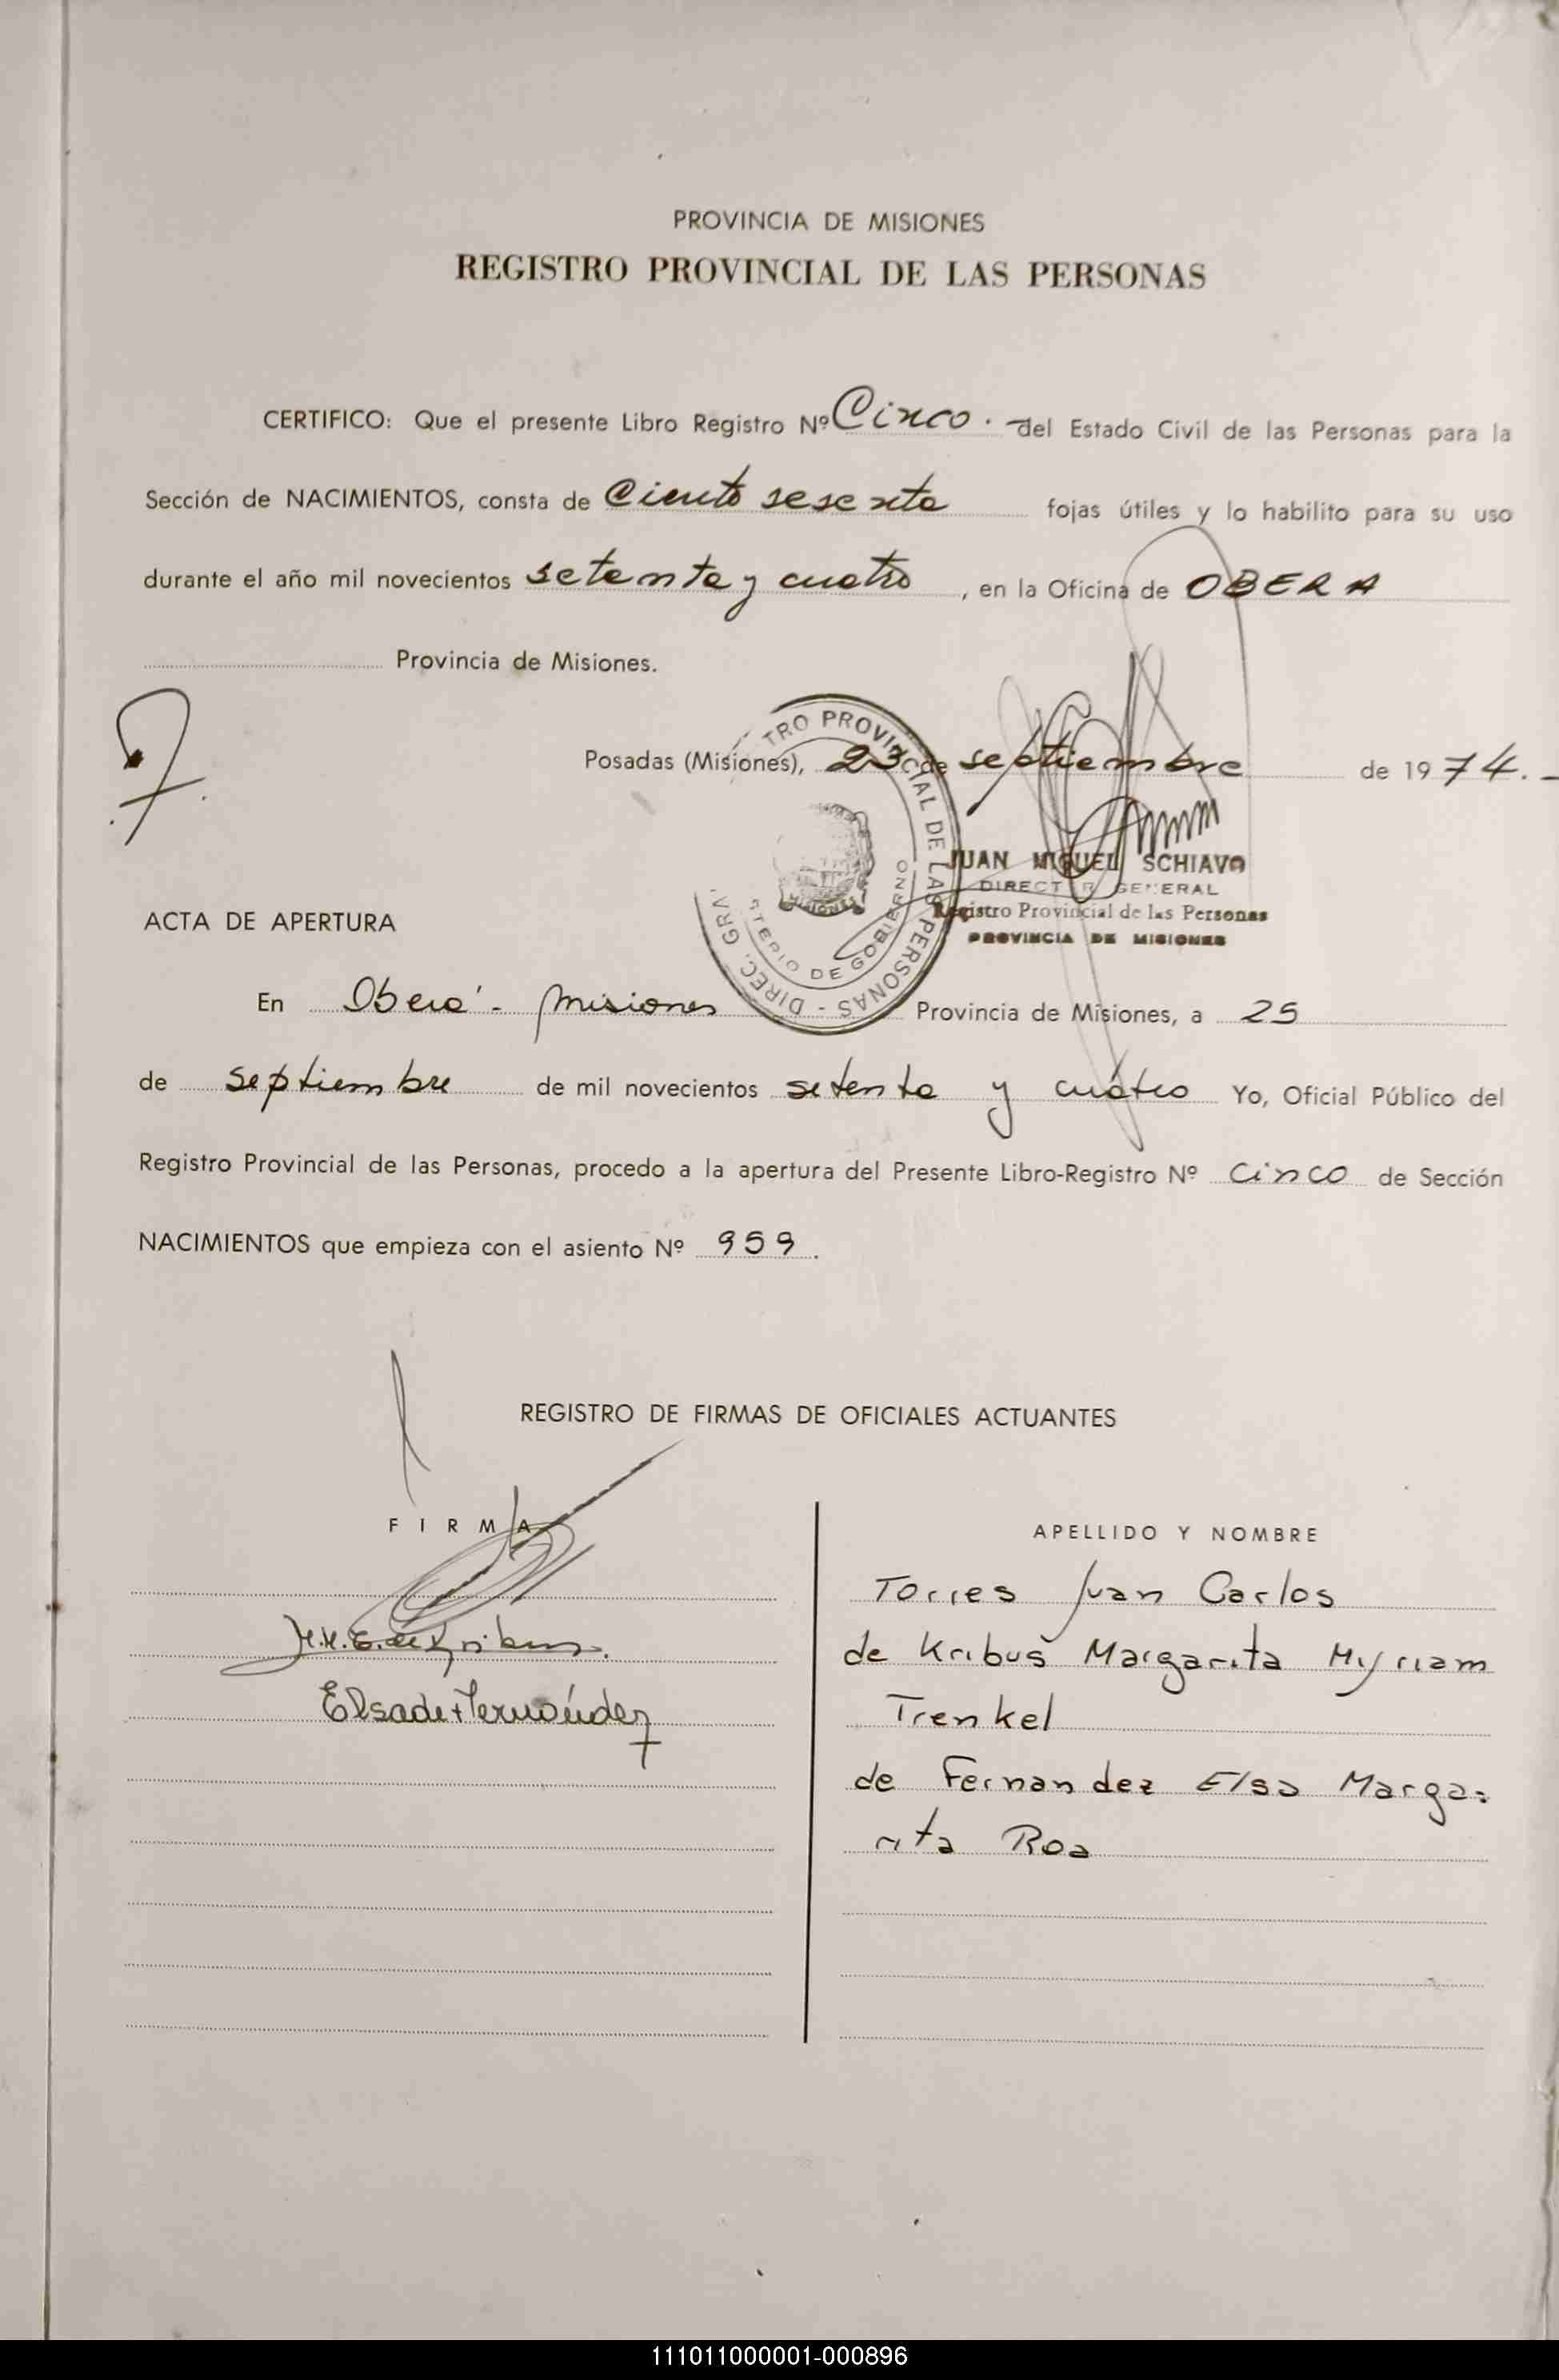 PROVINCIA DE MISIONES
REGISTRO PROVINCIAL DE LAS PERSONAS
CERTIFICO: Que el presente Libro Registro Nº Cinco. del Estado Civil de las Personas para la
Sección de NACIMIENTOS, consta de Ciento sesenta fojas útiles y lo habilito para su uso
durante el año mil novecientos setenta y cuatro, en la Oficina de OBERA
Provincia de Misiones.
Posadas (Misiones), 23 de septiembre de 1974.-
TRO PROVINCIAL DE LAS PERSONAS - DIREC. GRA
STERIO DE GOBIERNO
MISIONES
JUAN MIGUEL SCHIAVO
DIRECTOR GENERAL
Registro Provincial de las Personas
PROVINCIA DE MISIONES
ACTA DE APERTURA
En Oberá - Misiones Provincia de Misiones, a 25
de septiembre de mil novecientos setenta y cuatro Yo, Oficial Público del
Registro Provincial de las Personas, procedo a la apertura del Presente Libro-Registro Nº Cinco de Sección
NACIMIENTOS que empieza con el asiento Nº 959.
REGISTRO DE FIRMAS DE OFICIALES ACTUANTES
FIRMA APELLIDO Y NOMBRE
Torres Juan Carlos
M.M.E. de Kribus. de Kribus Margarita Myriam
Elsa de Hernández Trenkel
de Fernandez Elsa Marga=
rita Roa
111011000001-000896